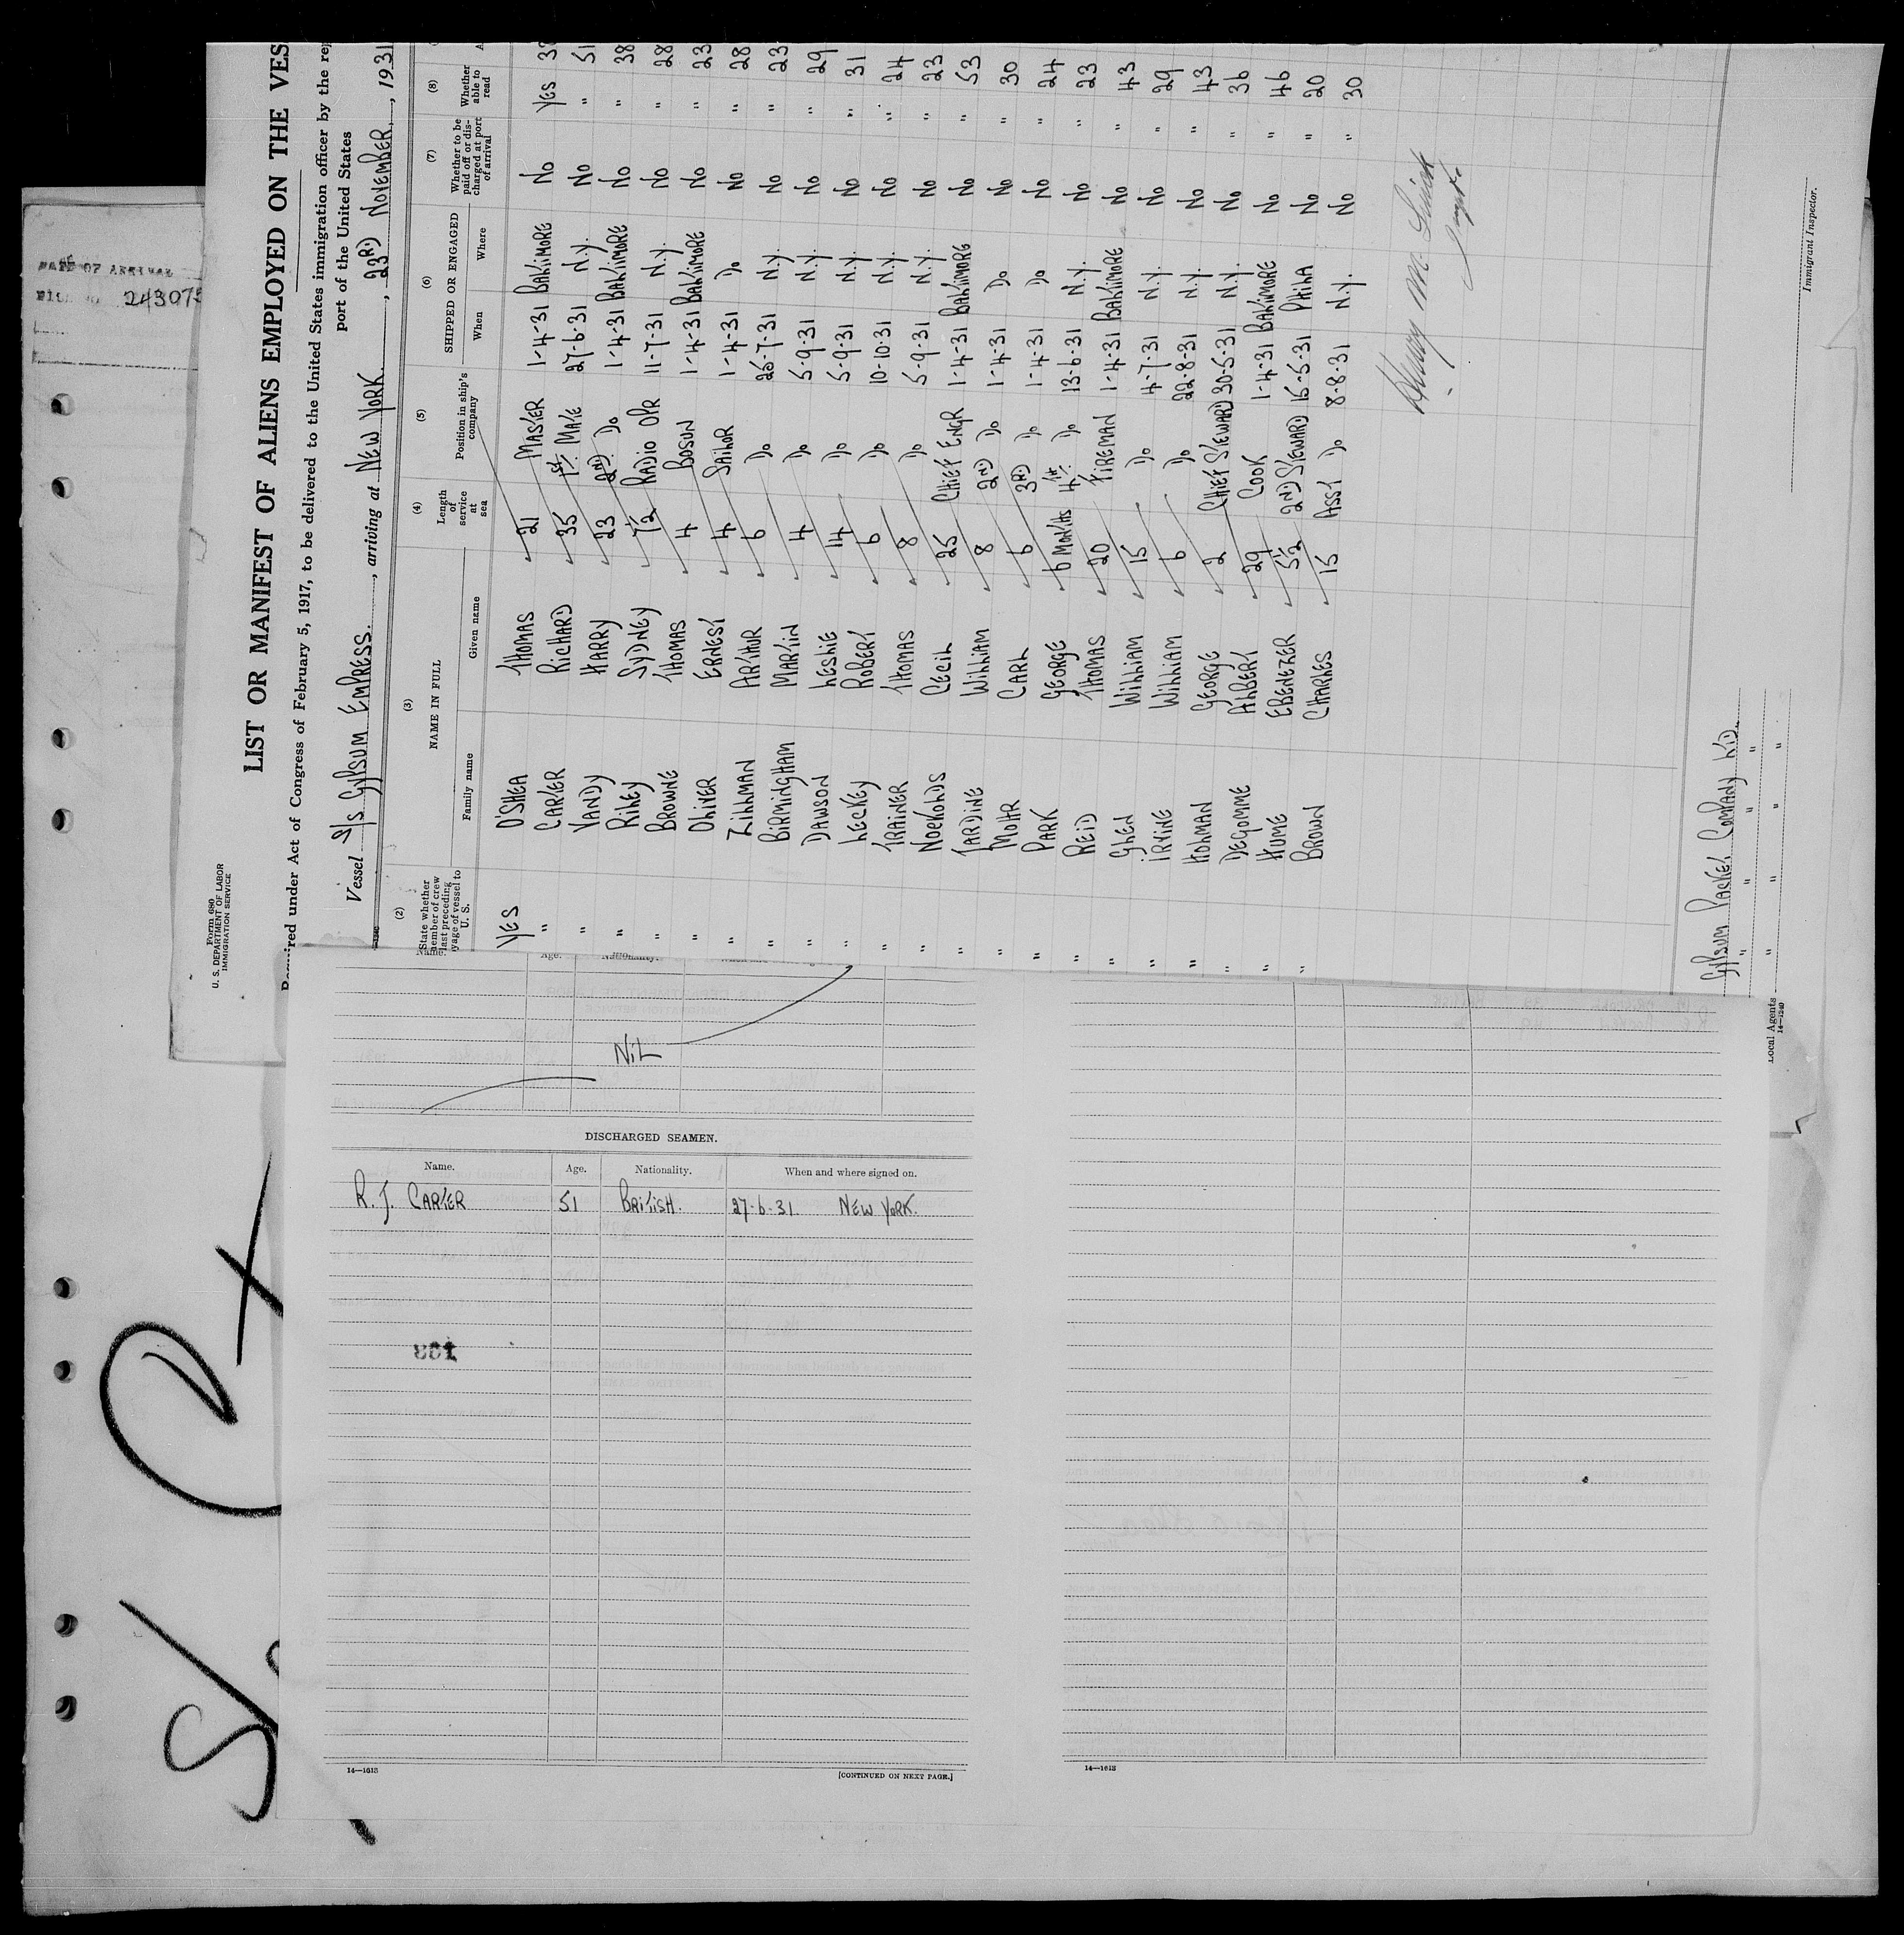 DATE OF ARRIVAL
243075
Form 680
U. S. DEPARTMENT OF LABOR
IMMIGRATION SERVICE
LIST OR MANIFEST OF ALIENS EMPLOYED ON THE VES
Required under Act of Congress of February 5, 1917, to be delivered to the United States immigration officer by the rep
port of the United States
Vessel S/S GYPSUM EMPRESS., arriving at NEW YORK., 23RD NOVEMBER., 1931
(2) (3) (4) (5) (6) (7) (8)
State whether member of crew last preceding voyage of vessel to U. S. NAME IN FULL Length of service at sea Position in ship's company SHIPPED OR ENGAGED Whether to be paid off or discharged at port of arrival Whether able to read
Family name Given name When Where
YES O'SHEA THOMAS 21 MASTER 1-4-31 BALTIMORE NO YES
" CARTER RICHARD 35 1ST MATE 27-6-31 N.Y. NO " 51
" VANDY HARRY 23 2ND DO 1-4-31 BALTIMORE NO " 38
" RILEY SYDNEY 7½ RADIO OPR 11-7-31 N.Y. NO " 28
" BROWNE THOMAS 4 BOSUN 1-4-31 BALTIMORE NO " 23
" OLIVER ERNEST 4 SAILOR 1-4-31 DO NO " 28
" ZILLMAN ARTHUR 6 DO 25-7-31 N.Y. NO " 23
" BIRMINGHAM MARTIN 4 DO 5-9-31 N.Y. NO " 29
" DAWSON LESLIE 14 DO 5-9-31 N.Y. NO " 31
" LECKEY ROBERT 6 DO 10-10-31 N.Y. NO " 24
" TRAINER THOMAS 8 DO 5-9-31 N.Y. NO " 23
" NOCKOLDS CECIL 25 CHIEF ENGR 1-4-31 BALTIMORE NO " 53
" JARDINE WILLIAM 8 2ND DO 1-4-31 DO NO " 30
" MOHR CARL 6 3RD DO 1-4-31 DO NO " 24
" PARK GEORGE 6 MONTHS 4TH DO 13-6-31 N.Y. NO " 23
" REID THOMAS 20 FIREMAN 1-4-31 BALTIMORE NO " 43
" GLEN WILLIAM 15 DO 4-7-31 N.Y. NO " 29
" IRVINE WILLIAM 6 DO 22-8-31 N.Y. NO " 43
" HOLMAN GEORGE 2 CHIEF STEWARD 30-5-31 N.Y. NO " 36
" DEGOMME ALBERT 29 COOK 1-4-31 BALTIMORE NO " 46
" HUME EBENEZER 5½ 2ND STEWARD 15-5-31 PHILA NO " 20
" BROWN CHARLES 15 ASST DO 8-8-31 N.Y. NO " 30
GYPSUM PACKET COMPANY LTD.
Local Agents
14—1240
Immigrant Inspector.
Name. Age. Nationality.
NIL
DISCHARGED SEAMEN.
Name. Age. Nationality. When and where signed on.
R. J. CARTER 51 BRITISH. 27-6-31. NEW YORK.
14—1613
[CONTINUED ON NEXT PAGE.]
14—1613